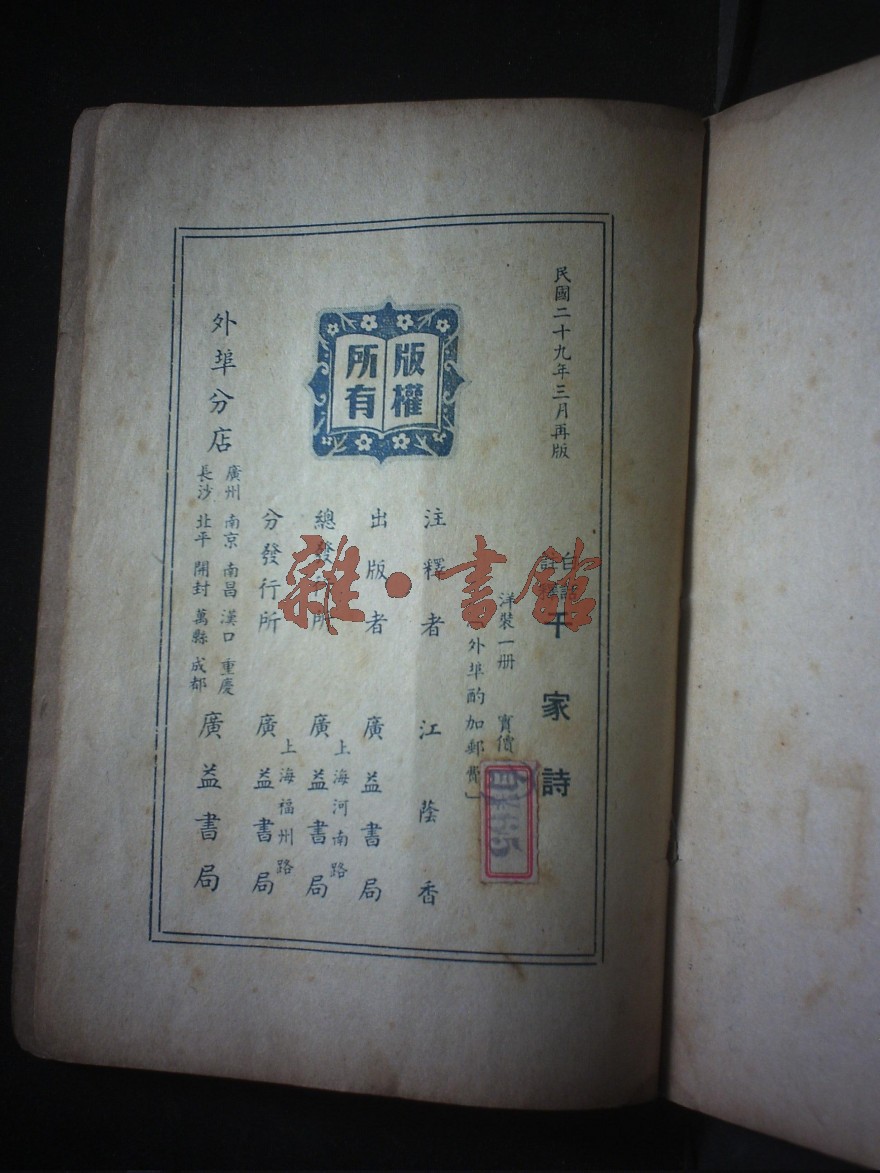 民國二十九年三月再版
千家詩
洋裝一册 實價
外埠酌加郵費
版權所有
注釋者 江蔭香
出版者 廣益書局
上海河南路
總發行所 廣益書局
上海福州路
分發行所 廣益書局
外埠分店
廣州 南京 南昌 漢口 重慶
長沙 北平 開封 萬縣 成都
廣益書局
雜·書館